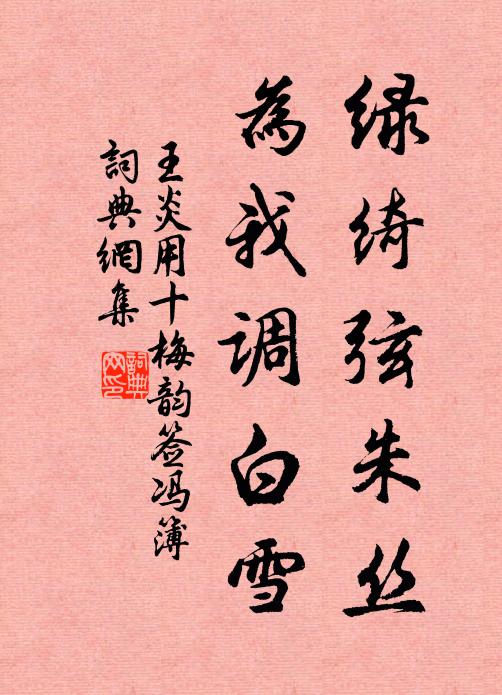 绿绮弦朱丝
為我調白雪
王炎用十梅韵签冯簿
詞典網集
詞典網印